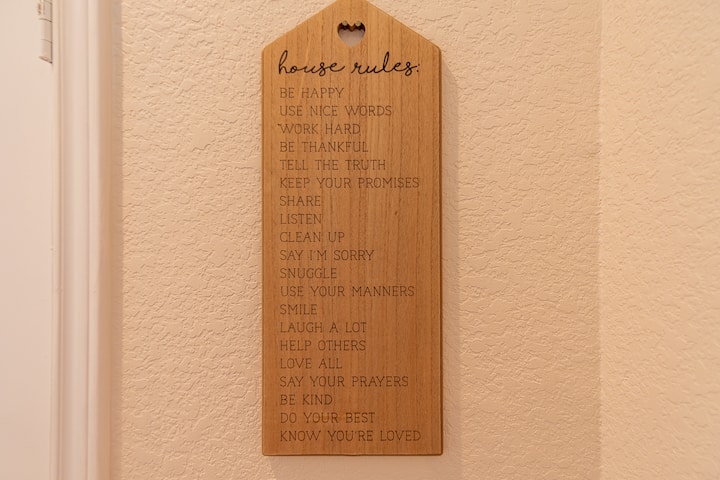 house rules:
BE HAPPY
USE NICE WORDS
WORK HARD
BE THANKFUL
TELL THE TRUTH
KEEP YOUR PROMISES
SHARE
LISTEN
CLEAN UP
SAY I'M SORRY
SNUGGLE
USE YOUR MANNERS
SMILE
LAUGH A LOT
HELP OTHERS
LOVE ALL
SAY YOUR PRAYERS
BE KIND
DO YOUR BEST
KNOW YOU'RE LOVED